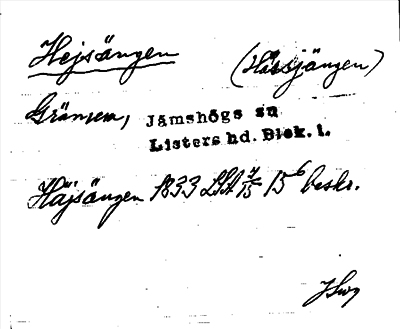 Hejsängen (Hässjängen)
Gränsen, Jämshögs sn
Listers hd. Blek. l.
Häjsängen 1833 LSA 4/15 15⁶ beskr.